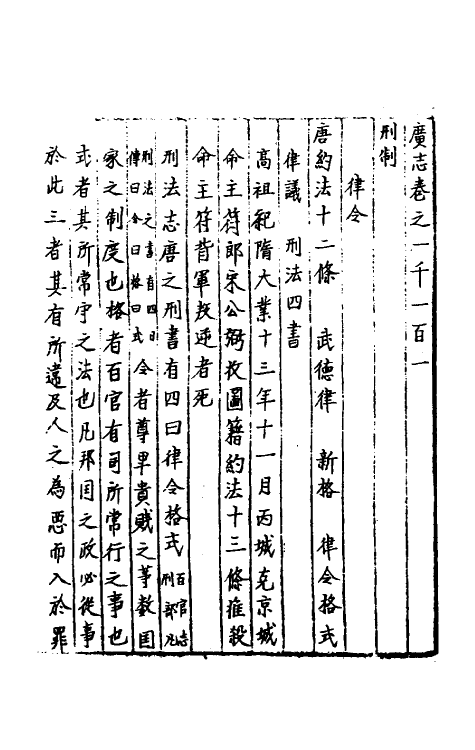 廣志卷之一千一百一
刑制
律令
唐約法十二條　武德律　新格　律令格式
律議　刑法四書
高祖紀隋大業十三年十一月丙城克京城
命主符郎宋公弼收圖籍約法十三條惟殺
命主符背軍叛逆者死
刑法志唐之刑書有四曰律令格式百官志刑部凡
刑法之書有四曰律曰令曰格曰式令者尊卑貴賤之等數国
家之制度也格者百官有司所常行之事也
式者其所常守之法也凡邦国之政必從事
於此三者其有所違及人之為惡而入於罪